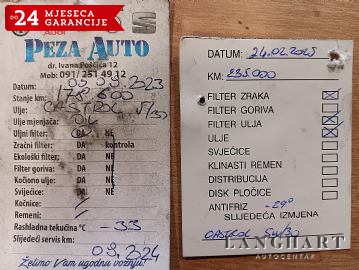 do 24 MJESECA
GARANCIJE
AUDI SEAT
PEZA-AUTO
dr. Ivana Pošćića 12
Mob: 091/ 251 49 12
Datum: 2023
Stanje km:
Ulje: CASTROL 5/30
Ulje mjenjača:
Uljni filter: DA NE
Zračni filter: DA NE kontrola
Ekološki filter: DA NE
Filter goriva: DA NE
Kočiono ulje: DA NE
Svijećice: DA NE
Kočnice:
Remeni:
Rashladna tekućina °C -33
Slijedeći servis km:
09.2024
Želimo Vam ugodnu vožnju!
DATUM: 24.02.2025
KM: 235.000
FILTER ZRAKA
FILTER GORIVA
FILTER ULJA
ULJE
SVJEĆICE
KLINASTI REMEN
DISTRIBUCIJA
DISK PLOČICE
ANTIFRIZ -29°
SLIJEDEĆA IZMJENA
CASTROL 5W30
LANGHART
AUTOCENTAR